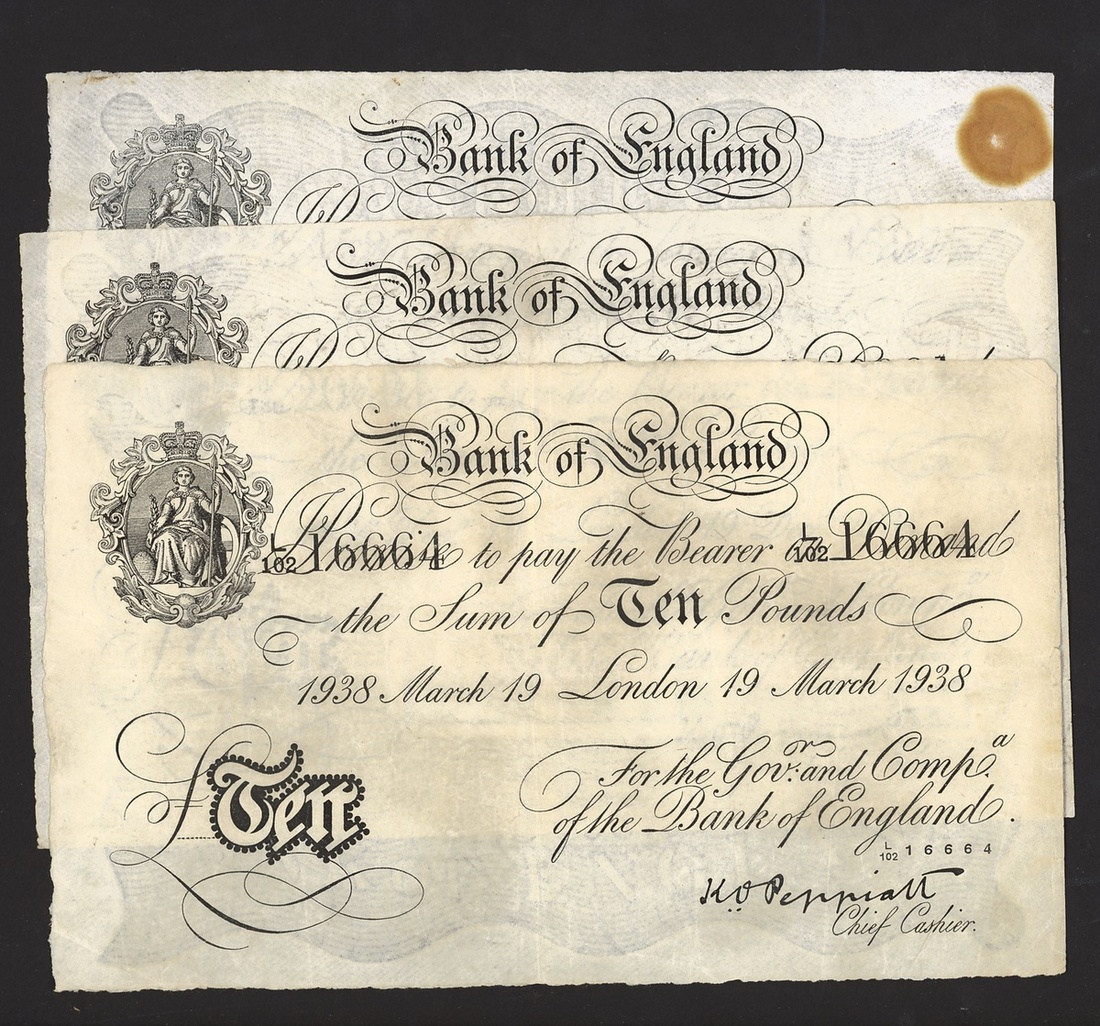 Bank of England
Bank of England
Bank of England
L/102 16664 L/102 16664
I Promise to pay the Bearer on Demand
the Sum of Ten Pounds
1938 March 19 London 19 March 1938
For the Gov.r and Comp.a
of the Bank of England.
£Ten
L/102 16664
K.O. Peppiatt
Chief Cashier.